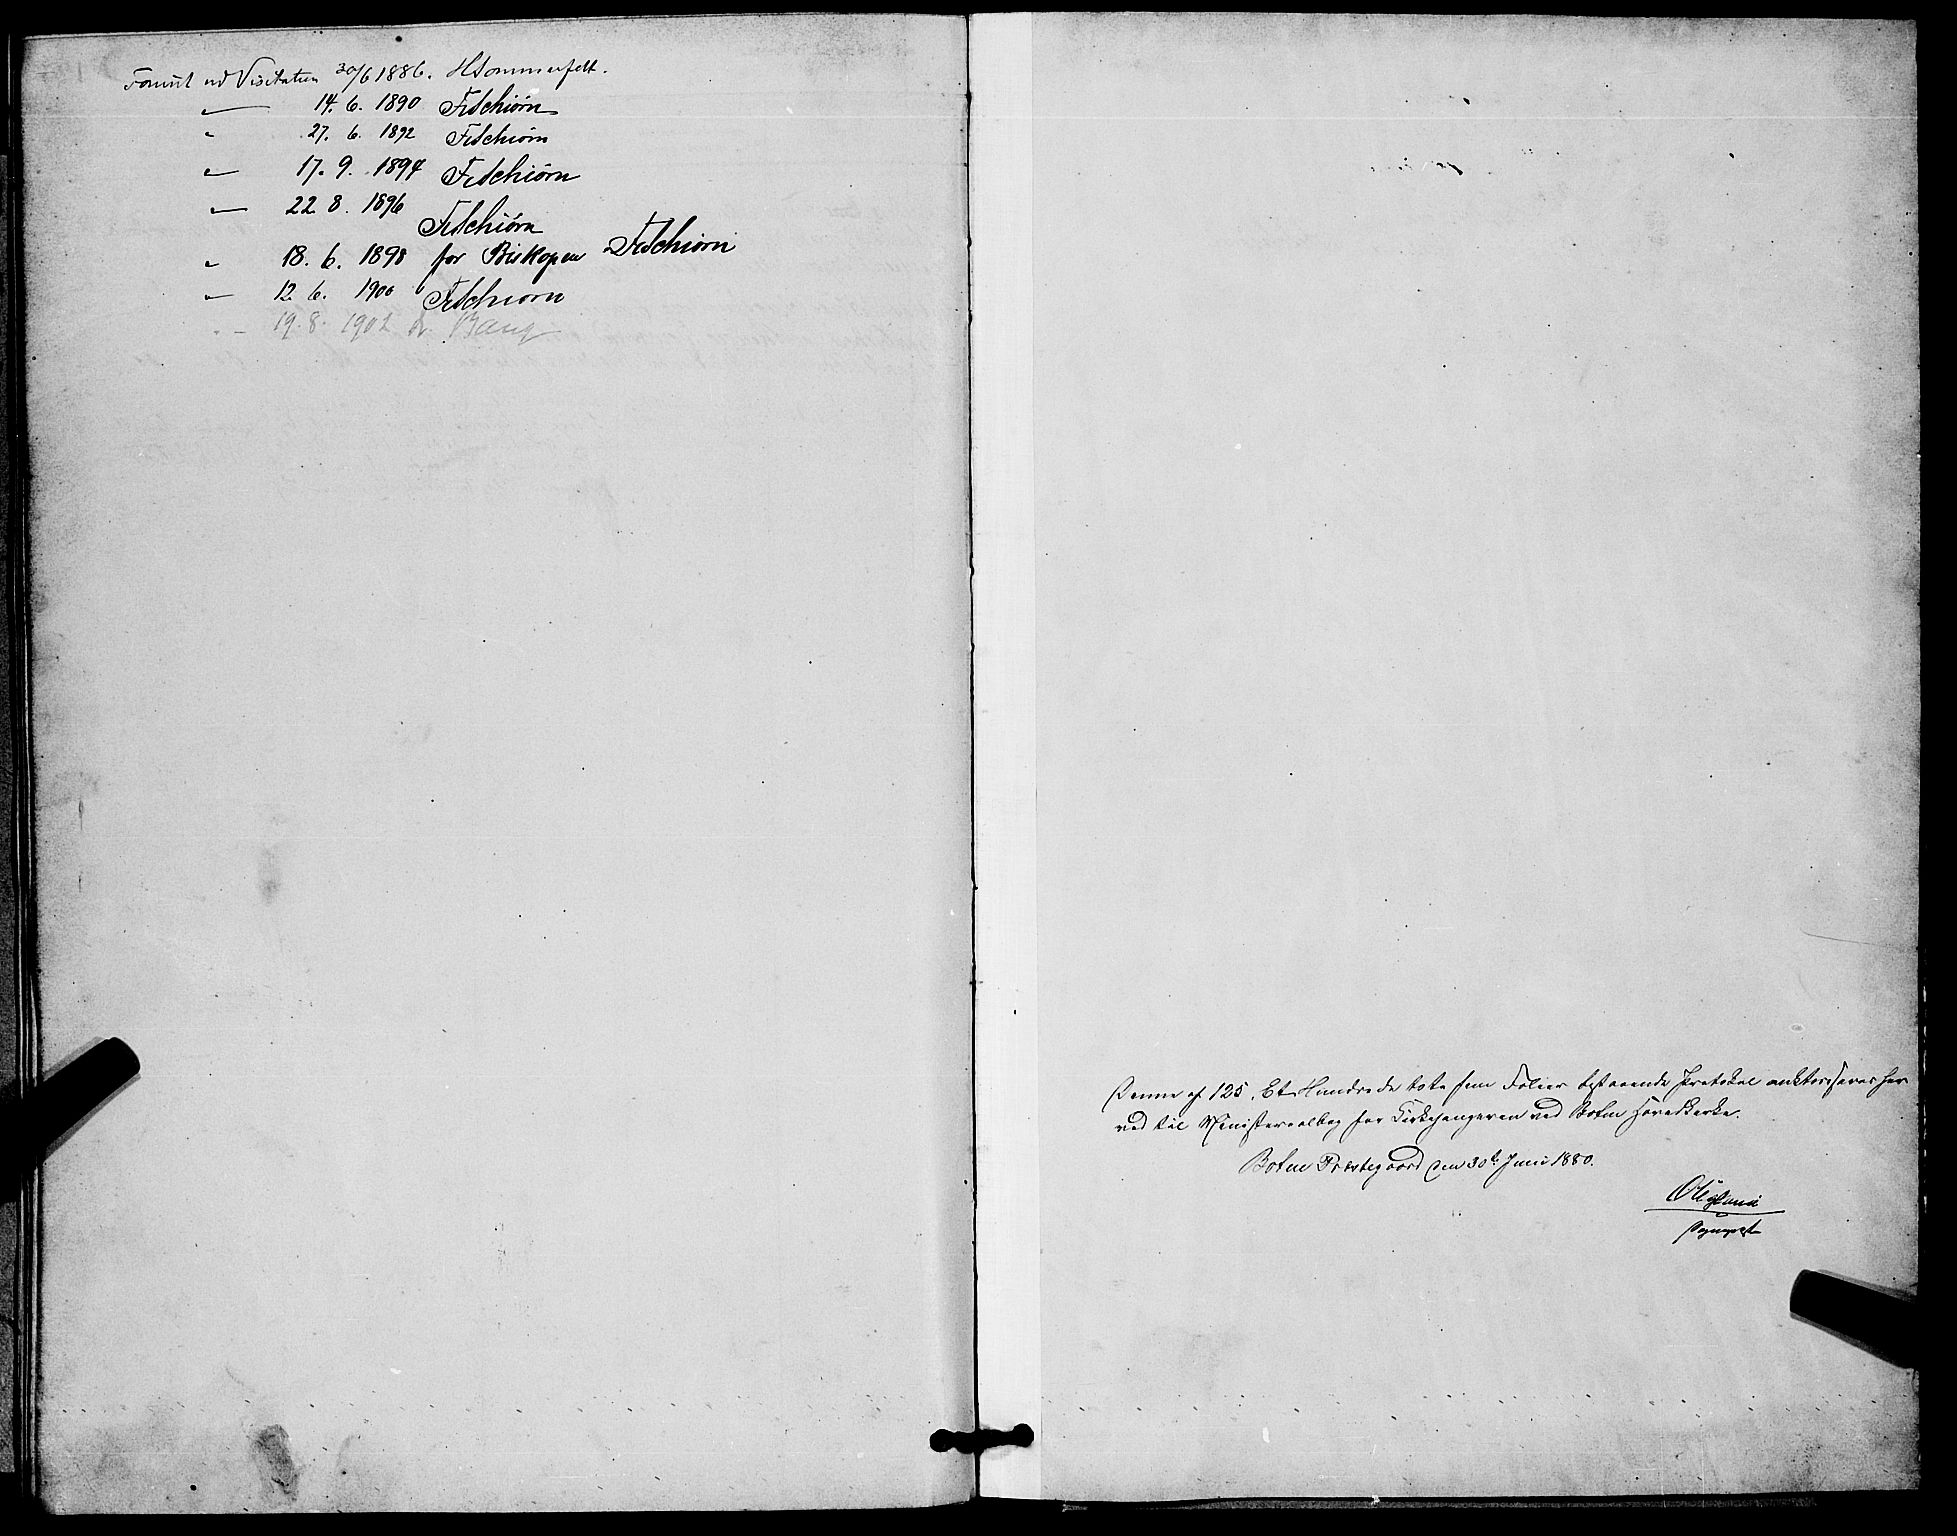 Forevist ved Visitatsen 30/6 1886. HSommerfelt.
" — 14. 6. 1890 FrSchiørn
" 27. 6. 1892 FrSchiørn
" — 17. 9. 1894 FrSchiørn
" — 22 8. 1896 FrSchiørn
" 18. 6. 1898 for Biskopen FrSchiørn
" — 12. 6. 1900 FrSchiørn
" — 19. 8. 1902 Dr. Bang
Denne af 125, Et Hundrede tyve fem Folier bestaaende Protokol auktoriseres her
ved til Ministerialbog for Kirkesangeren ved Botne Hovedkirke.
Botne Præstegaard den 30te Juni 1880.
Sognepræst